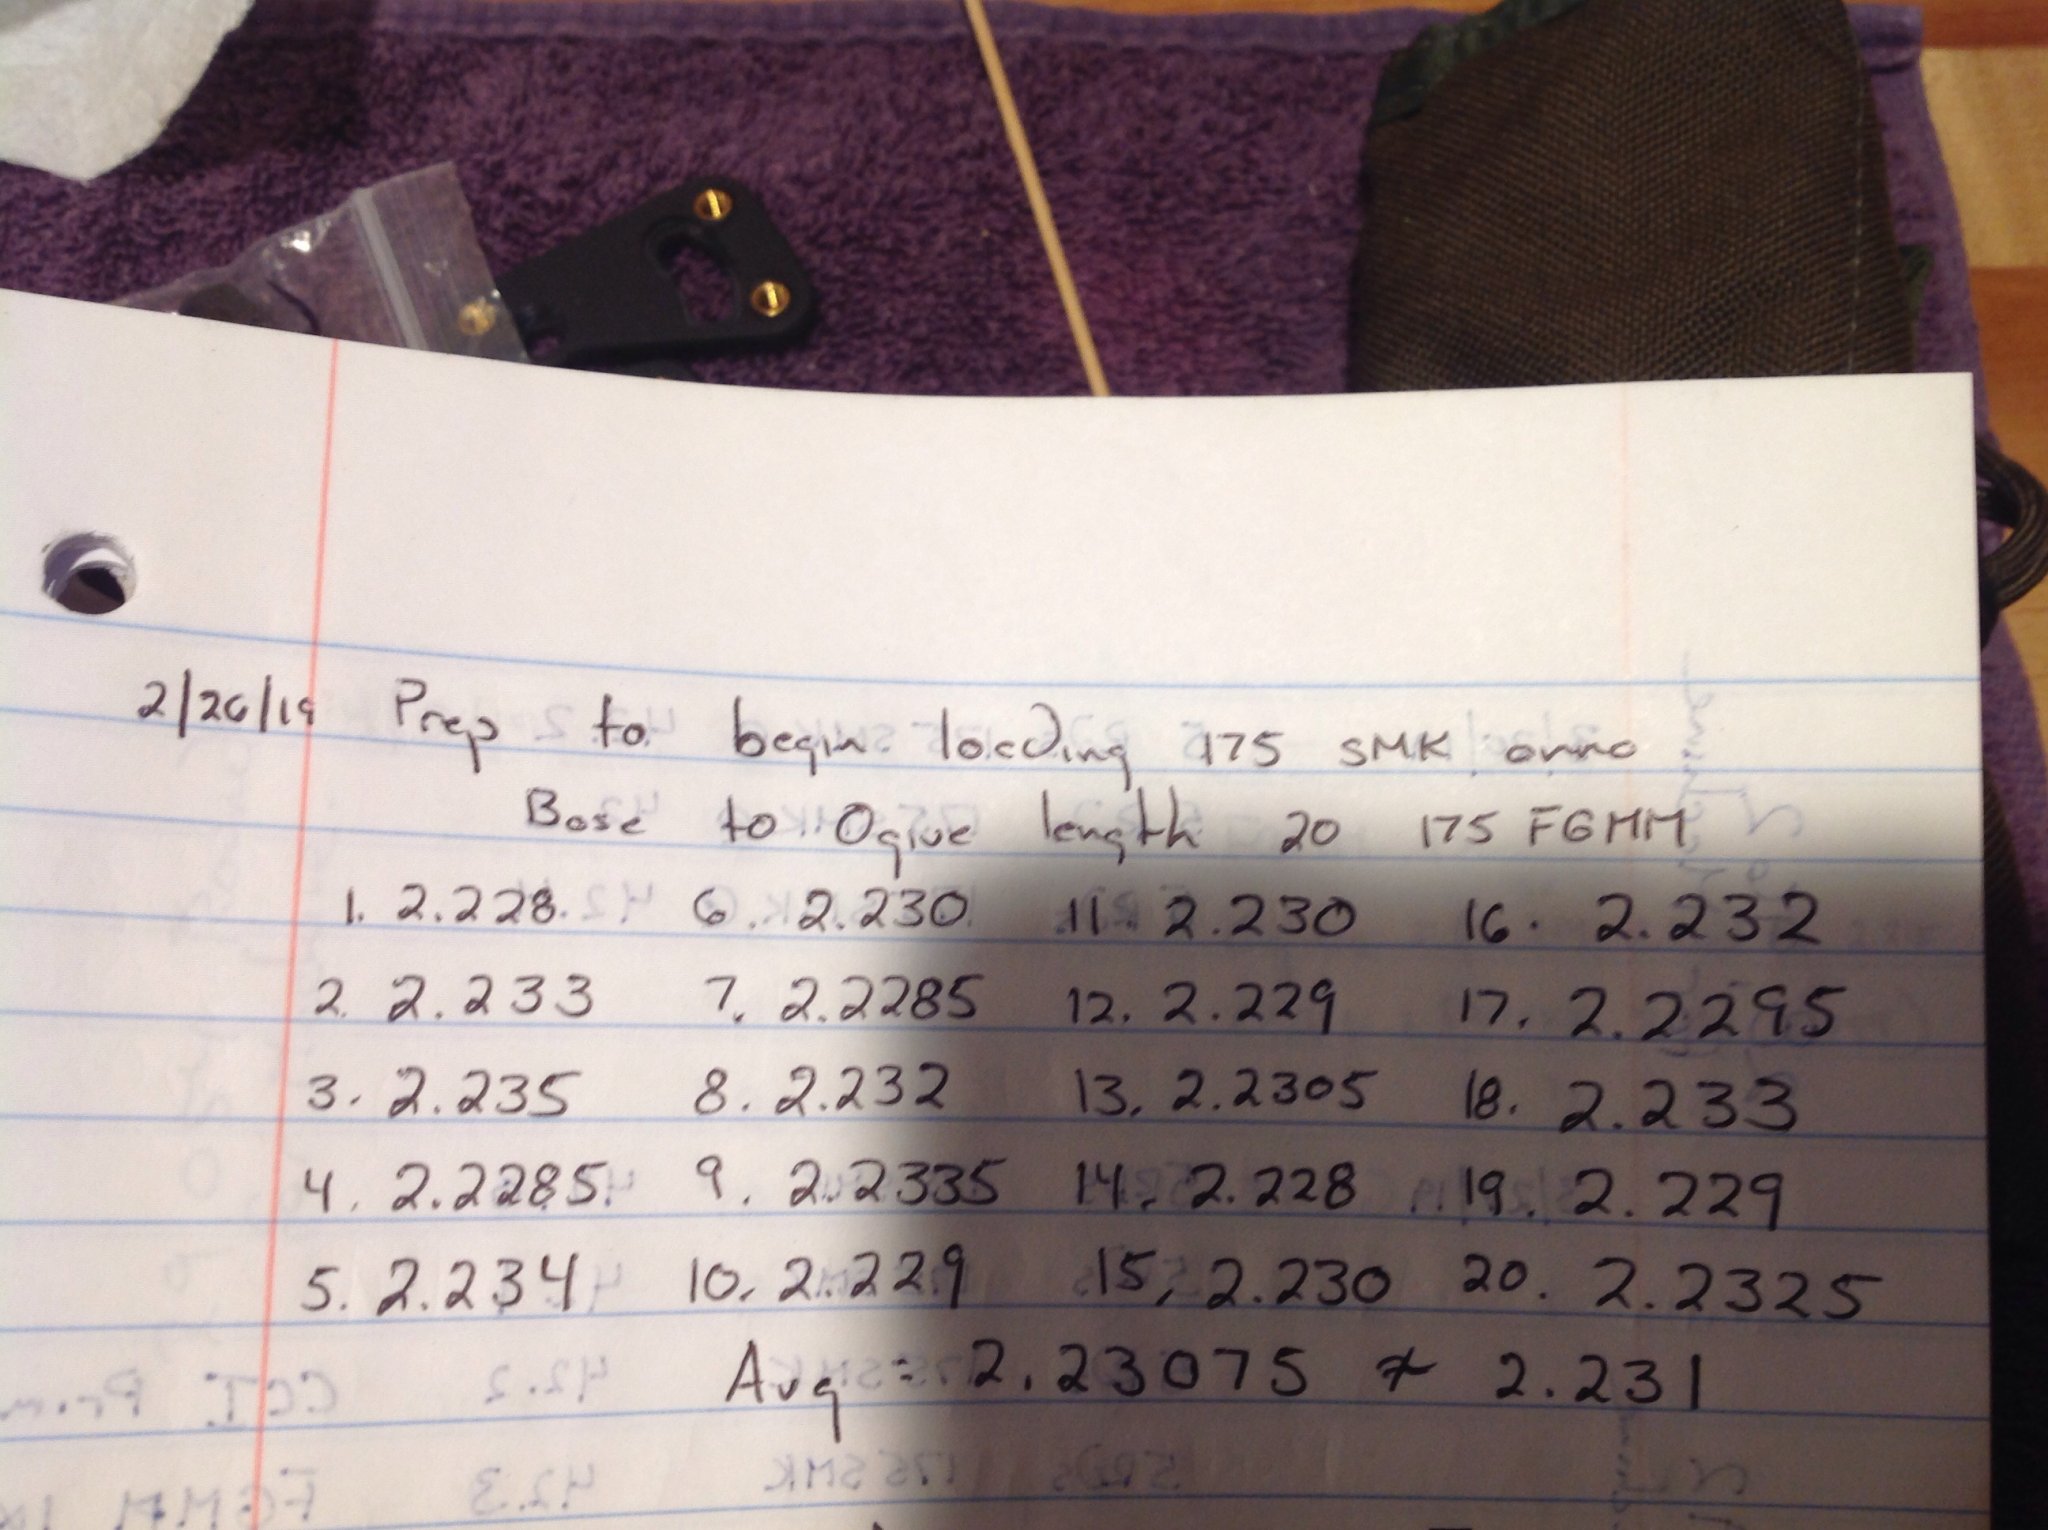 2/26/19 Prep to begin loading 175 SMK ammo
Base to Ogive length 20 175 FGMM
1. 2.228 6. 2.230 11. 2.230 16. 2.232
2. 2.233 7. 2.2285 12. 2.229 17. 2.2295
3. 2.235 8. 2.232 13. 2.2305 18. 2.233
4. 2.2285 9. 2.2335 14. 2.228 19. 2.229
5. 2.234 10. 2.229 15. 2.230 20. 2.2325
Avg = 2.23075 ≈ 2.231